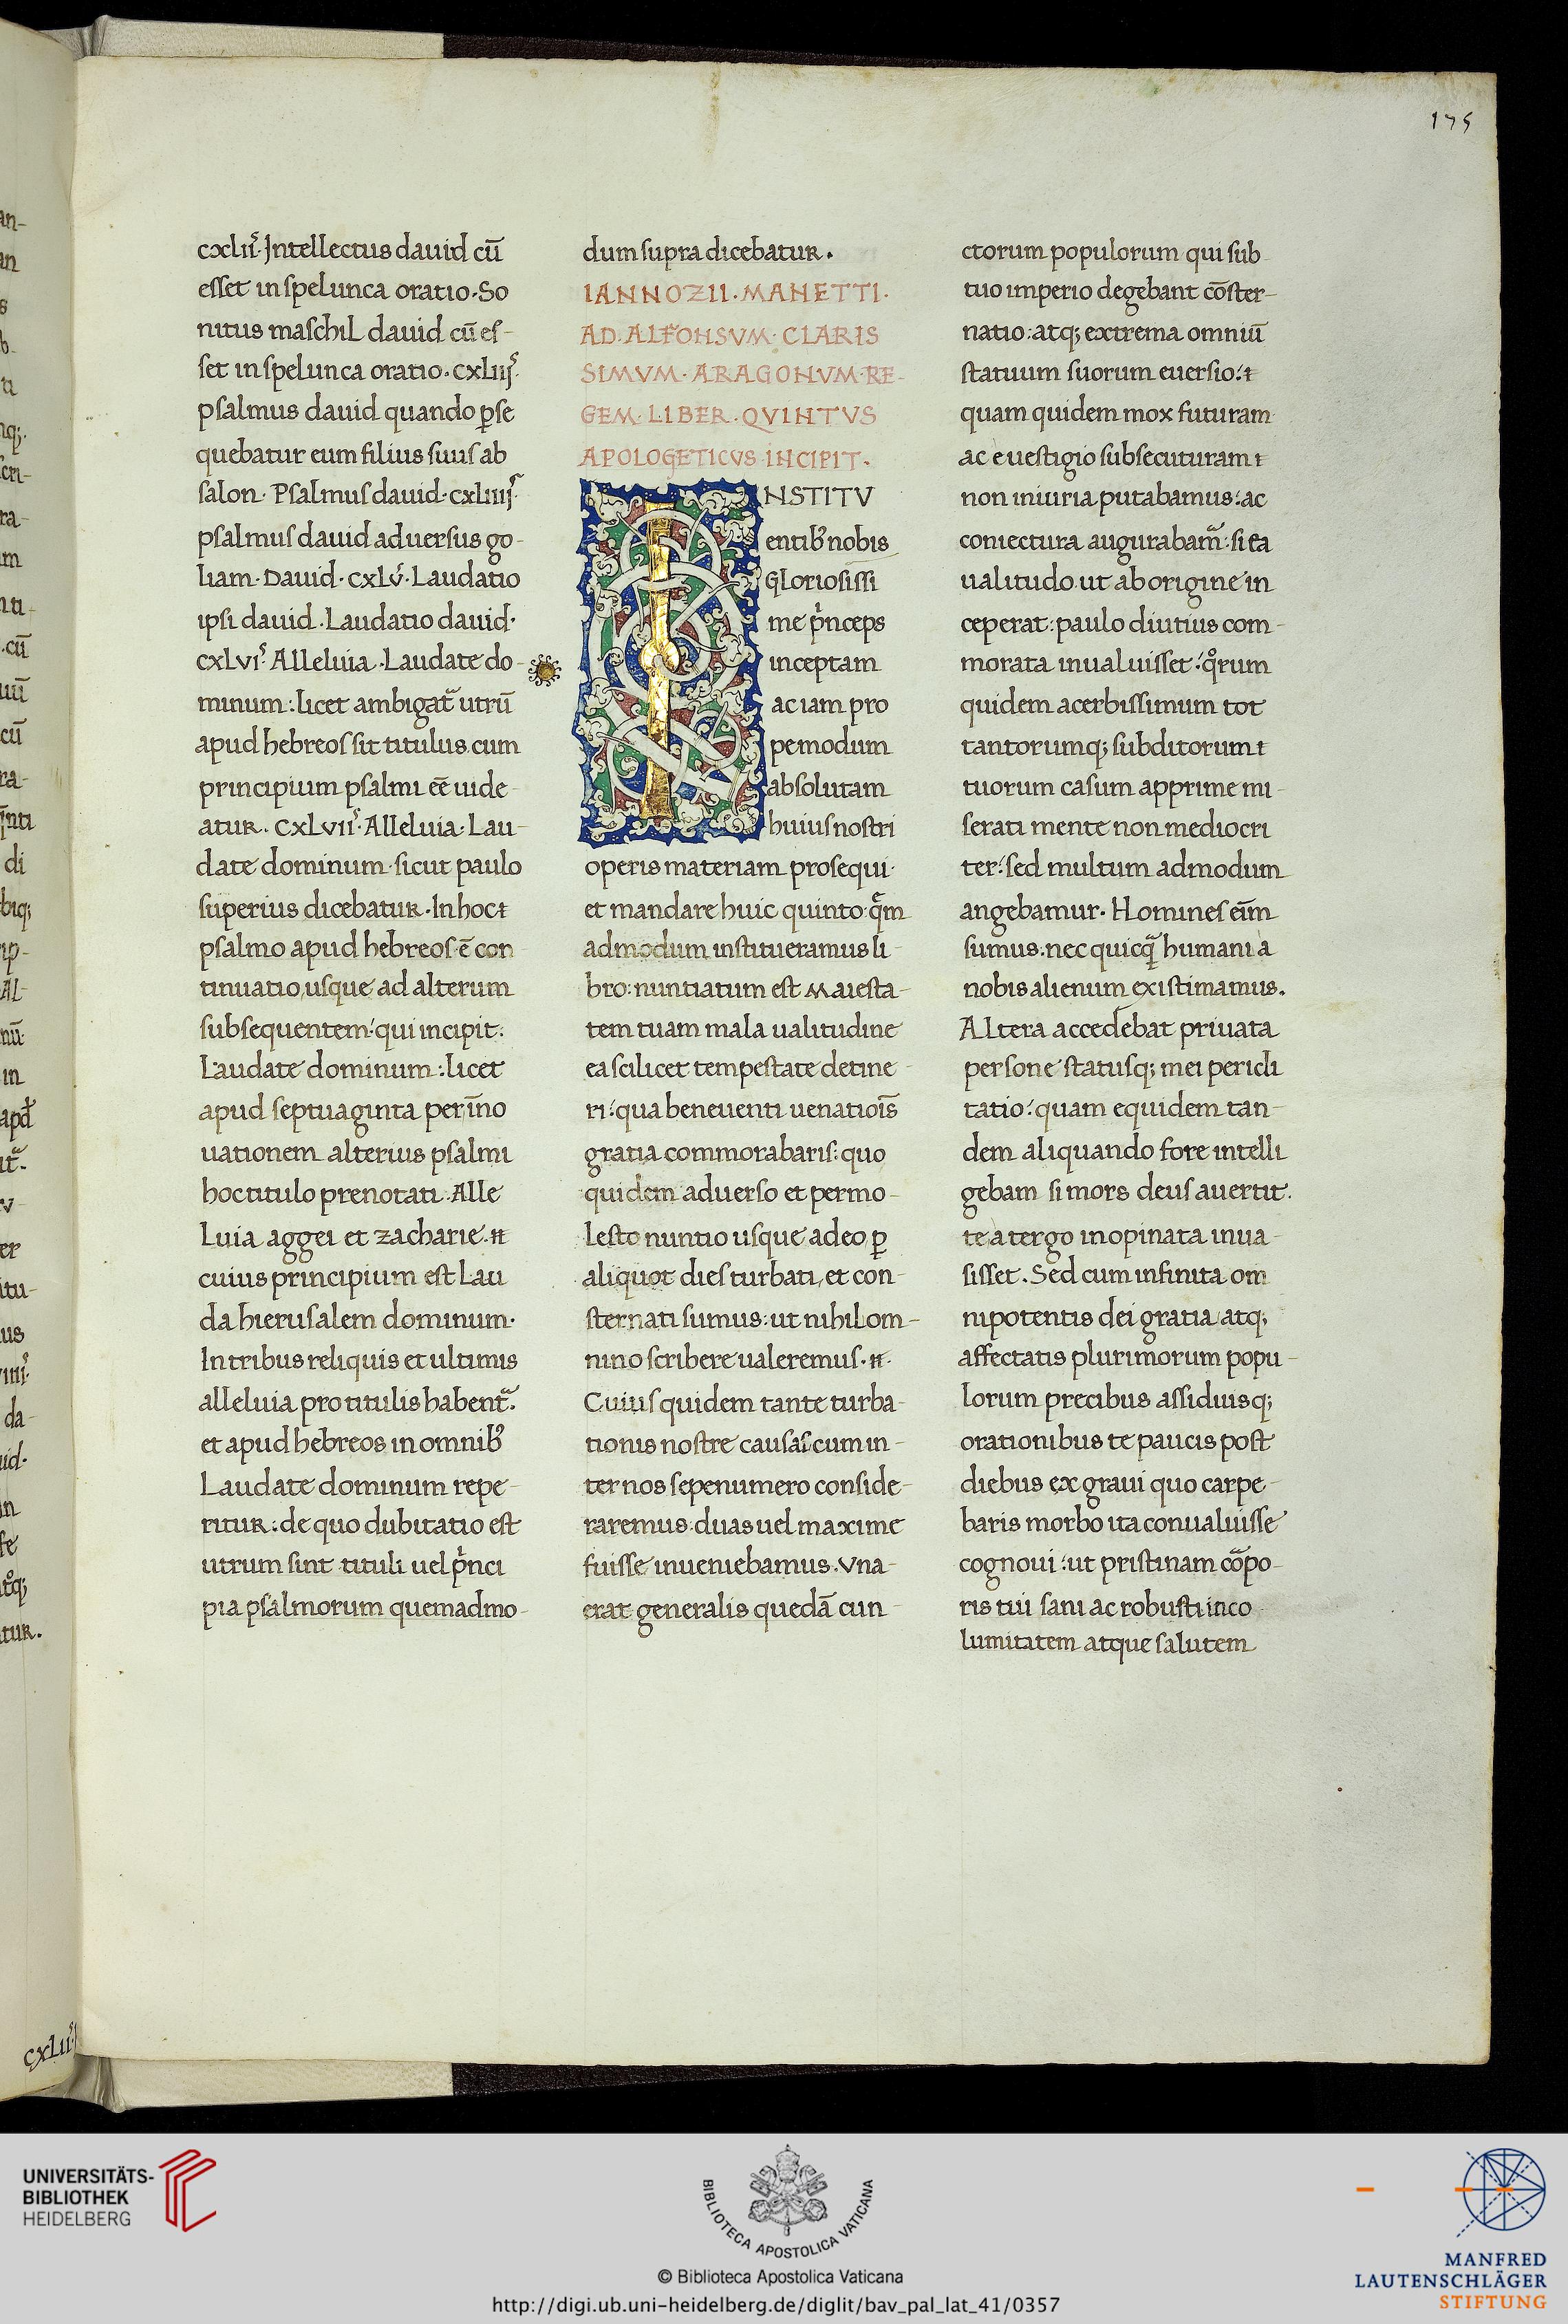 175
cxlii. Intellectus dauid cū
esset in spelunca oratio. So
nitus maschil dauid cū es-
set in spelunca oratio. cxliij.
psalmus dauid quando ꝑse
quebatur eum filius suus ab
salon. Psalmus dauid. cxliiij.
psalmus dauid aduersus go-
liam. Dauid. cxlv. Laudatio
ipsi dauid. Laudatio dauid.
cxlvi. Alleluia. Laudate do-
minum: licet ambigat᷑ utrū
apud hebreos sit titulus cum
principium psalmi eē uide-
atur. cxlvii. Alleluia. Lau-
date dominum. sicut paulo
superius dicebatur. In hoc
psalmo apud hebreos ē con
tinuatio usque ad alterum
subsequentem: qui incipit:
Laudate dominum: licet
apud septuaginta per īno
uationem alterius psalmi
hoc titulo prenotati. Alle
luia aggei et zacharie.
cuius principium est Lau
da hierusalem dominum.
In tribus reliquis et ultimis
alleluia pro titulis habent᷑.
et apud hebreos in omnibꝰ
Laudate dominum repe-
ritur: de quo dubitatio est
utrum sint tituli uel pͥnci
pia psalmorum quemadmo-
dum supra dicebatur.
IANNOZII. MANETTI.
AD. ALFONSVM. CLARIS
SIMVM. ARAGONVM. RE-
GEM. LIBER. QVINTVS
APOLOGETICVS. INCIPIT.
INSTITV
entibꝰ nobis
Gloriosissi
me pͥnceps
inceptam
ac iam pro
pemodum
absolutam
huius nostri
operis materiam prosequi.
et mandare huic quinto qͣm
admodum institueramus li-
bro: nuntiatum est Maiesta-
tem tuam mala ualitudine
ea scilicet tempestate detine-
ri: qua beneuenti uenatiōis
gratia commorabaris: quo
quidem aduerso et permo-
lesto nuntio usque adeo ꝑ
aliquot dies turbati, et con-
sternati sumus: ut nihil om-
nino scribere ualeremus.
Cuius quidem tante turba-
tionis nostre causas cum in-
ter nos sepenumero conside-
raremus: duas uel maxime
fuisse inueniebamus. Vna-
erat generalis quedā cun-
ctorum populorum qui sub
tuo imperio degebant cōster-
natio: atqꝫ extrema omniū
statuum suorum euersio:
quam quidem mox futuram
ac e uestigio subsecuturam
non iniuria putabamus: ac
coniectura augurabam᷑: si ea
ualitudo ut ab origine in
ceperat: paulo diutius com-
morata inualuisset: qͦrum
quidem acerbissimum tot
tantorumqꝫ subditorum
tuorum casum apprime mi-
serati mente non mediocri
ter: sed multum admodum
angebamur. Homines eīm
sumus: nec quicqͣ humani a
nobis alienum existimamus.
Altera accedebat priuata
persone statusqꝫ mei pericli
tatio: quam equidem tan-
dem aliquando fore intelli
gebam si mors deus auertit.
te a tergo inopinata inua-
sisset. Sed cum infinita om
nipotentis dei gratia atqꝫ
affectatis plurimorum popu-
lorum precibus assiduisqꝫ
orationibus te paucis post
diebus ex graui quo carpe-
baris morbo ita conualuisse
cognoui: ut pristinam cōpo-
ris tui sani ac robusti inco
lumitatem atque salutem
cxlii.
UNIVERSITÄTS-
BIBLIOTHEK
HEIDELBERG
BIBLIOTECA APOSTOLICA VATICANA
© Biblioteca Apostolica Vaticana
http://digi.ub.uni-heidelberg.de/diglit/bav_pal_lat_41/0357
MANFRED
LAUTENSCHLÄGER
STIFTUNG